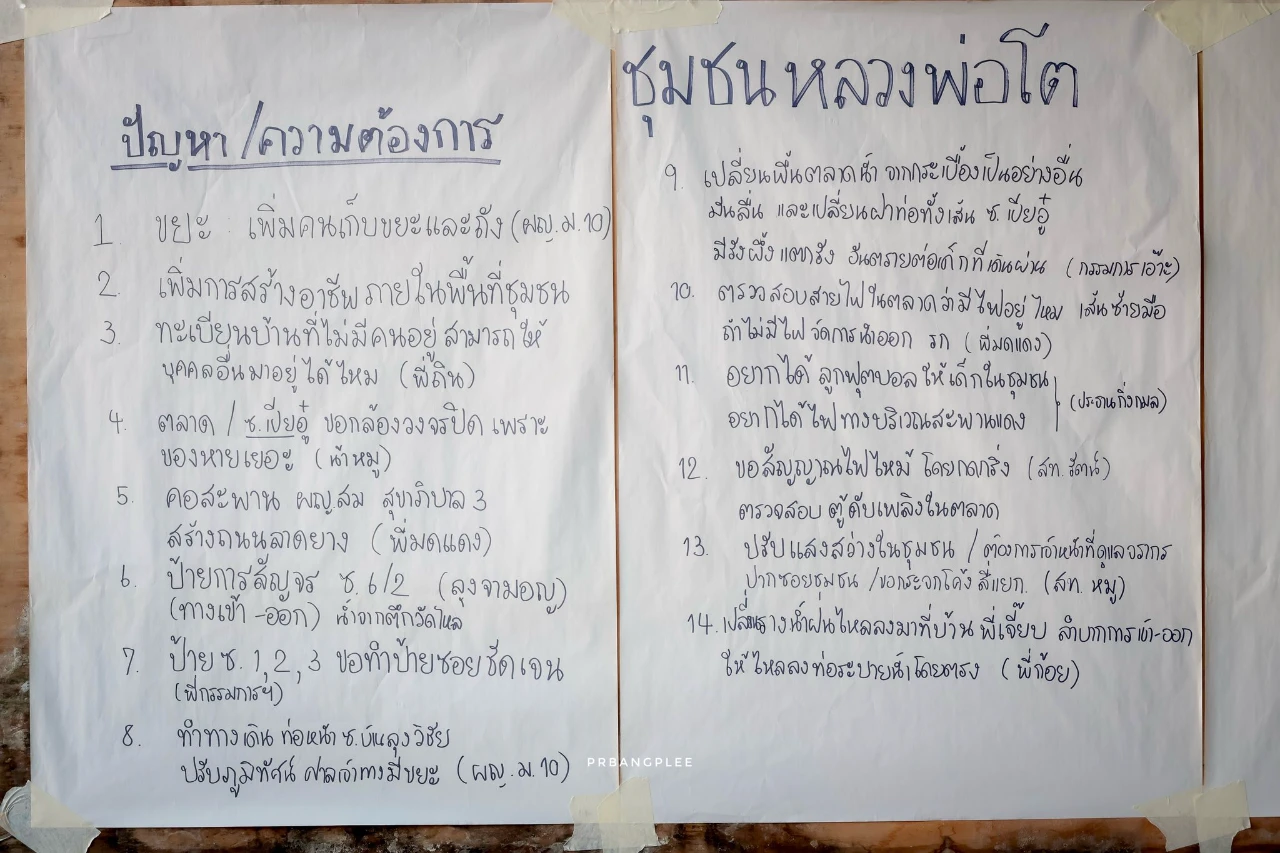 ปัญหา/ความต้องการ
1. ขยะ : เพิ่มคนเก็บขยะและถัง (ผญ.ม.10)
2. เพิ่มการสร้างอาชีพภายในพื้นที่ชุมชน
3. ทะเบียนบ้านที่ไม่มีคนอยู่ สามารถให้
บุคคลอื่นมาอยู่ได้ไหม (พี่ถิน)
4. ตลาด / ซ.เปียอู๋ ขอกล้องวงจรปิด เพราะ
ของหายเยอะ (น้าหมู)
5. คอสะพาน ผญ.สม สุขาภิบาล 3
สร้างถนนลาดยาง (พี่มดแดง)
6. ป้ายการสัญจร ซ.6/2 (ลุงจามอญ)
(ทางเข้า-ออก) น้ำจากตึกวัดไหล
7. ป้าย ซ. 1,2,3 ขอทำป้ายซอยชัดเจน
(พี่กรรมการฯ)
8. ทำทางเดิน ท่อหน้า ซ.บ้านลุงวิชัย
ปรับภูมิทัศน์ ศาลเจ้าทางมีขยะ (ผญ.ม.10)
ชุมชนหลวงพ่อโต
9. เปลี่ยนพื้นตลาดน้ำ จากกระเบื้องเป็นอย่างอื่น
มันลื่น และเปลี่ยนฝาท่อทั้งเส้น ซ.เปียอู๋
มีรังผึ้ง แตกรัง อันตรายต่อเด็กที่เดินผ่าน (กรรมการเอ๊าะ)
10. ตรวจสอบสายไฟในตลาดว่ามีไฟอยู่ไหม เส้นซ้ายมือ
ถ้าไม่มีไฟ จัดการนำออก รก (พี่มดแดง)
11. อยากได้ ลูกฟุตบอลให้เด็กในชุมชน
อยากได้ไฟทางบริเวณสะพานแดง (ประธานกิ่งกมล)
12. ขอสัญญาณไฟไหม้ โดยกดกริ่ง (สท.รัตน์)
ตรวจสอบ ตู้ดับเพลิงในตลาด
13. ปรับแสงสว่างในชุมชน / ต้องการเจ้าหน้าที่ดูแลจราจร
ปากซอยชุมชน /ขอกระจกโค้ง สี่แยก. (สท. หมู)
14. เปลี่ยนรางน้ำฝนไหลลงมาที่บ้าน พี่เจี๊ยบ ลำบากการเข้า-ออก
ให้ไหลลงท่อระบายน้ำโดยตรง (พี่ก้อย)
PRBANGPLEE